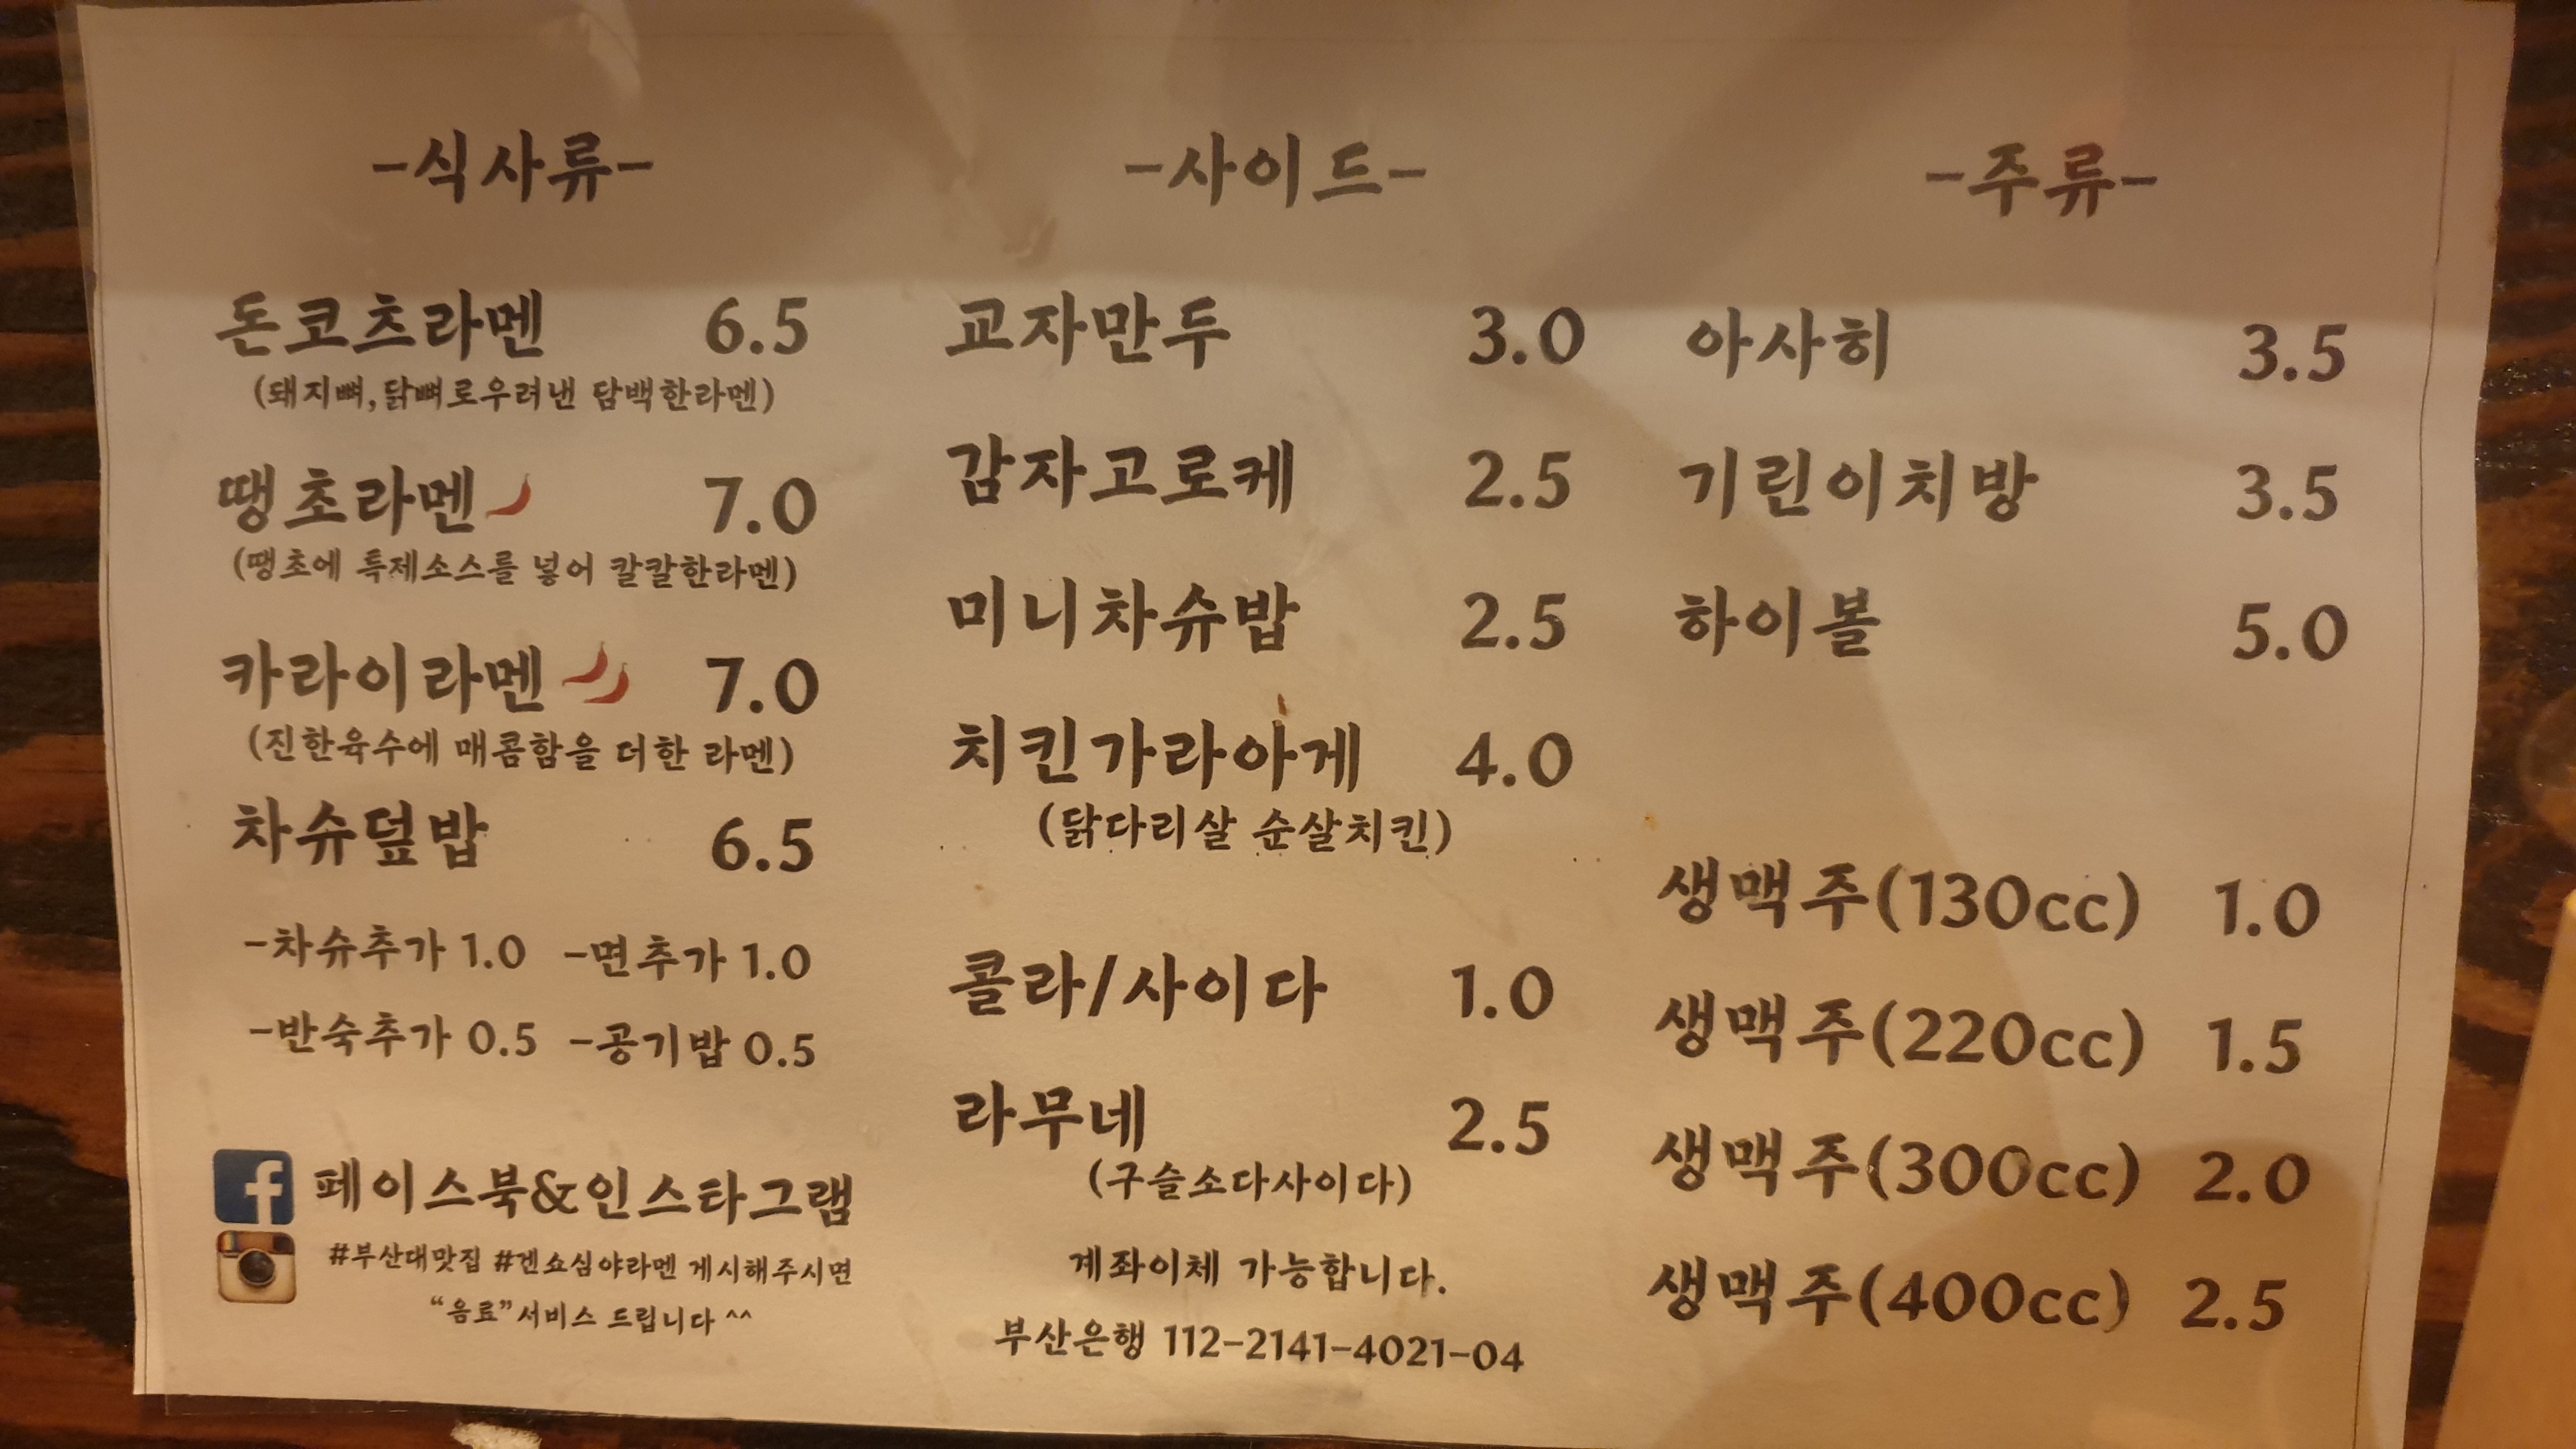 -식사류-
돈코츠라멘 6.5
(돼지뼈,닭뼈로우려낸 담백한라멘)
땡초라멘 7.0
(땡초에 특제소스를 넣어 칼칼한라멘)
카라이라멘 7.0
(진한육수에 매콤함을 더한 라멘)
차슈덮밥 6.5
-차슈추가 1.0 -면추가 1.0
-반숙추가 0.5 -공기밥 0.5
페이스북&인스타그램
#부산대맛집 #겐쇼심야라멘 게시해주시면
“음료”서비스 드립니다 ^^
-사이드-
교자만두 3.0
감자고로케 2.5
미니차슈밥 2.5
치킨가라아게 4.0
(닭다리살 순살치킨)
콜라/사이다 1.0
라무네 2.5
(구슬소다사이다)
계좌이체 가능합니다.
부산은행 112-2141-4021-04
-주류-
아사히 3.5
기린이치방 3.5
하이볼 5.0
생맥주(130cc) 1.0
생맥주(220cc) 1.5
생맥주(300cc) 2.0
생맥주(400cc) 2.5